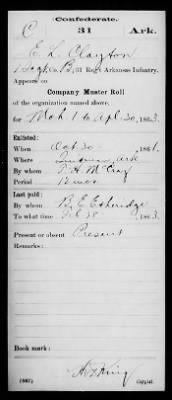 Confederate.
C 31 Ark.
E. L. Clayton
1 Sgt, Co. B, 31 Reg't Arkansas Infantry.
Appears on
Company Muster Roll
of the organization named above,
for Mch 1 to Apl 30, 1863.
Enlisted:
When Oct 30, 1861.
Where Ark
By whom T. H. McCray
Period 12 mos
Last paid:
By whom B. E. Etheridge
To what time Feb 28, 1863.
Present or absent Present
Remarks:
Book mark:
King
(642) Copyist.